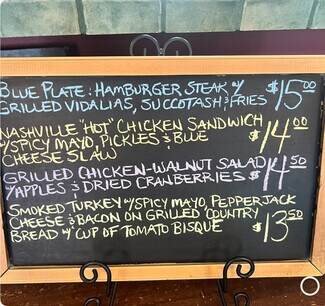 BLUE PLATE: HAMBURGER STEAK w/ $15.00
GRILLED VIDALIAS, SUCCOTASH & FRIES
NASHVILLE "HOT" CHICKEN SANDWICH $14.00
w/ SPICY MAYO, PICKLES & BLUE
CHEESE SLAW
GRILLED CHICKEN-WALNUT SALAD $14.50
w/ APPLES & DRIED CRANBERRIES
SMOKED TURKEY w/ SPICY MAYO, PEPPERJACK
CHEESE & BACON ON GRILLED COUNTRY $13.50
BREAD w/ CUP OF TOMATO BISQUE